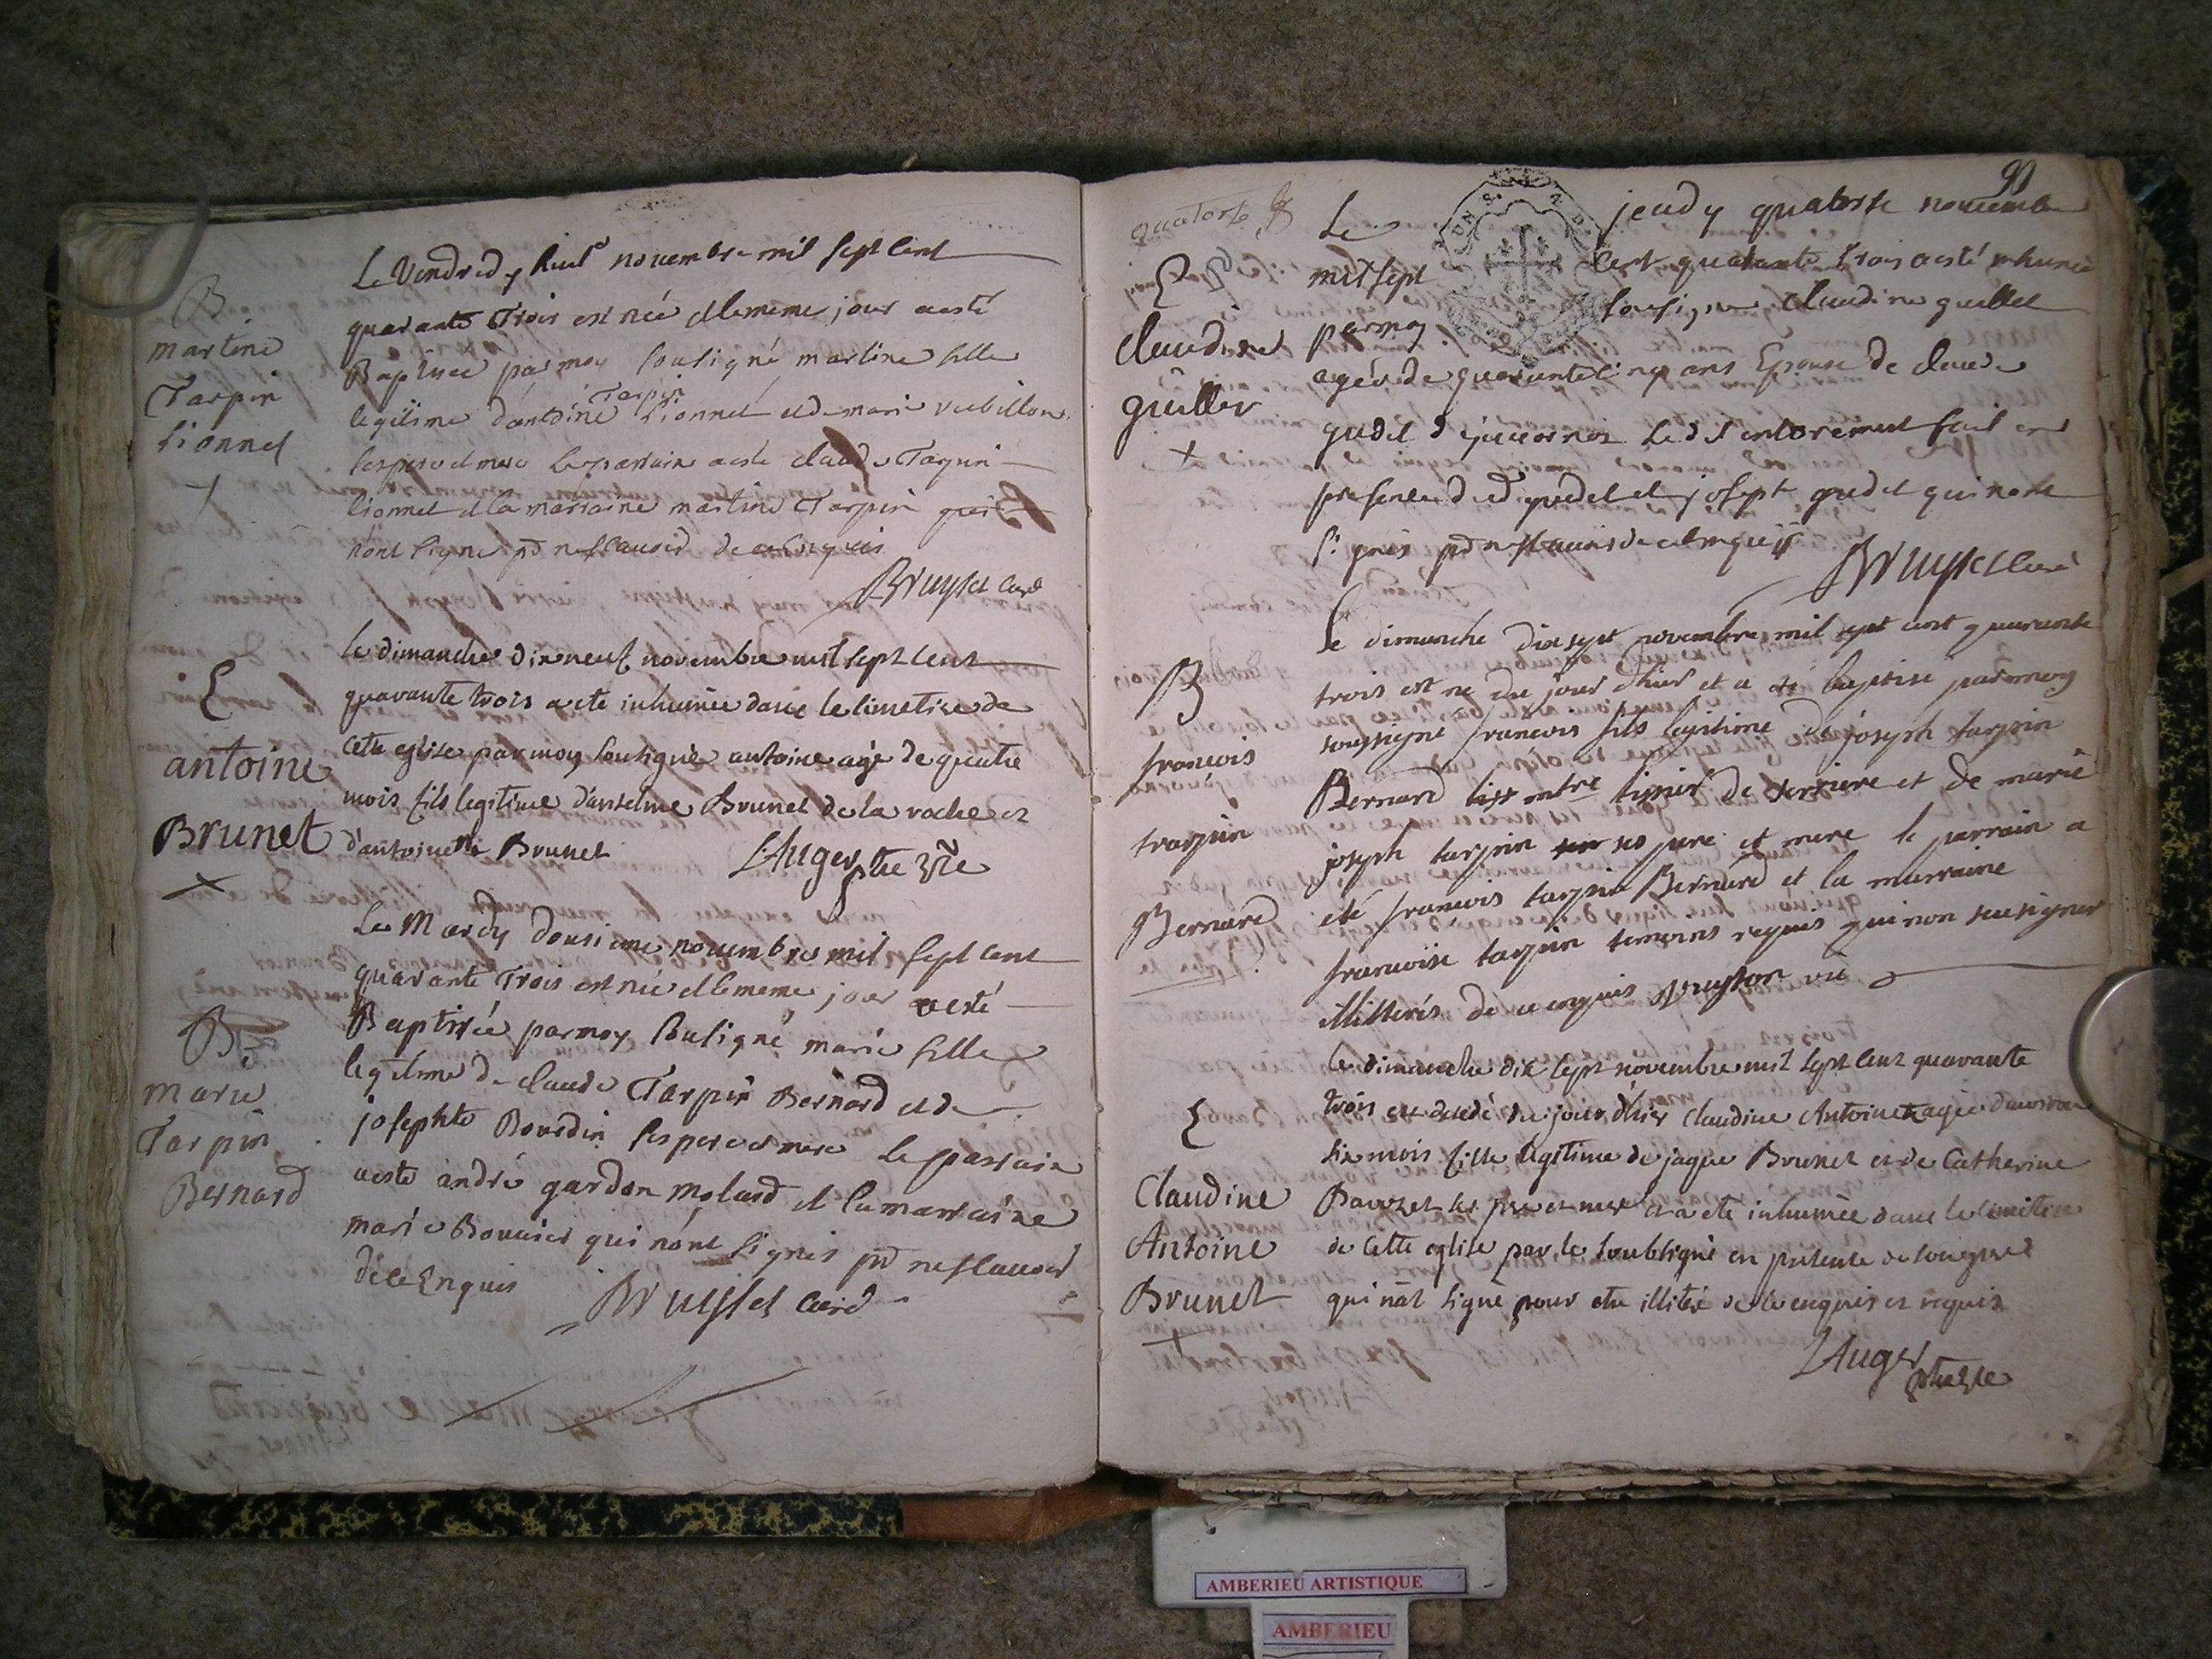 B
martine
Tarpin
Lionnet
Le Vendredy huit novembre mil sept cent
quarante Trois est née et le meme jour a esté
Baptisée par moy soussigné martine fille
legitime d'antoine Tarpin Lionnet et de marie
ses pere et mere le parrain a esté claude Tarpin
lionnet et la marraine martine Tarpin qui
n'ont signé pr ne sçavoir de ce Enquis
Bruyset curé
E
antoine
Brunet
le dimanche dix neuf novembre mil sept cent
quarante trois a ete inhumée dans le cimetire de
cette eglise par moy soussigné antoine agé de quatre
mois fils legitime d'anselme Brunet de la roche et
d'antoinette Brunet
LAuger ptre vre
B
marie
Tarpin
Bernard
Le Mardy dousieme novembre mil sept cent
quarante Trois est née et le meme jour a esté
Baptisée par moy soussigné marie fille
legitime de claude Tarpin Bernard et de
josephte Bourdin ses pere et mere le parrain
a esté andré gardon molard et la marraine
marie Bouvier qui n'ont signés pr ne sçavoir
de ce Enquis
Bruyset curé
99
quatorse
E
claudine
guillet
Le jeudy quatorse novembre
mil sept cent quarante trois a esté inhumée
par moy soussigné claudine guillet
agée de quarante cinq ans Epouse de claude
gudet le dit enterrement fait en
presence dud gudet et joseph gudet qui n'ont
signés pr ne sçavoir de ce enquis
Bruyset curé
B
francois
tarpin
Bernard
Le dimanche dix sept novembre mil sept cent quarante
trois est né du jour d'hier et a eté baptisé par moy
soussigné francois fils legitime de joseph tarpin
Bernard de et de marie
joseph tarpin ses pere et mere le parrain a
eté francois tarpin Bernard et la marraine
francoise tarpin temoins requis qui non sceu signer
illitterés de ce enquis Bruyson vic
E
Claudine
Antoine
Brunet
le dimanche dix sept novembre mil sept cent quarante
trois est decedé du jour d'hier claudine Antoine agée d'environ
six mois fille legitime de jaque Brunet et de Catherine
ses pere et mere et a eté inhumée dans le cimitire
de cette eglise par le soubsigné en presence de
qui n'at signé pour etre illiteré de ce enquis et requis
LAuger ptre vre
AMBERIEU ARTISTIQUE
AMBERIEU